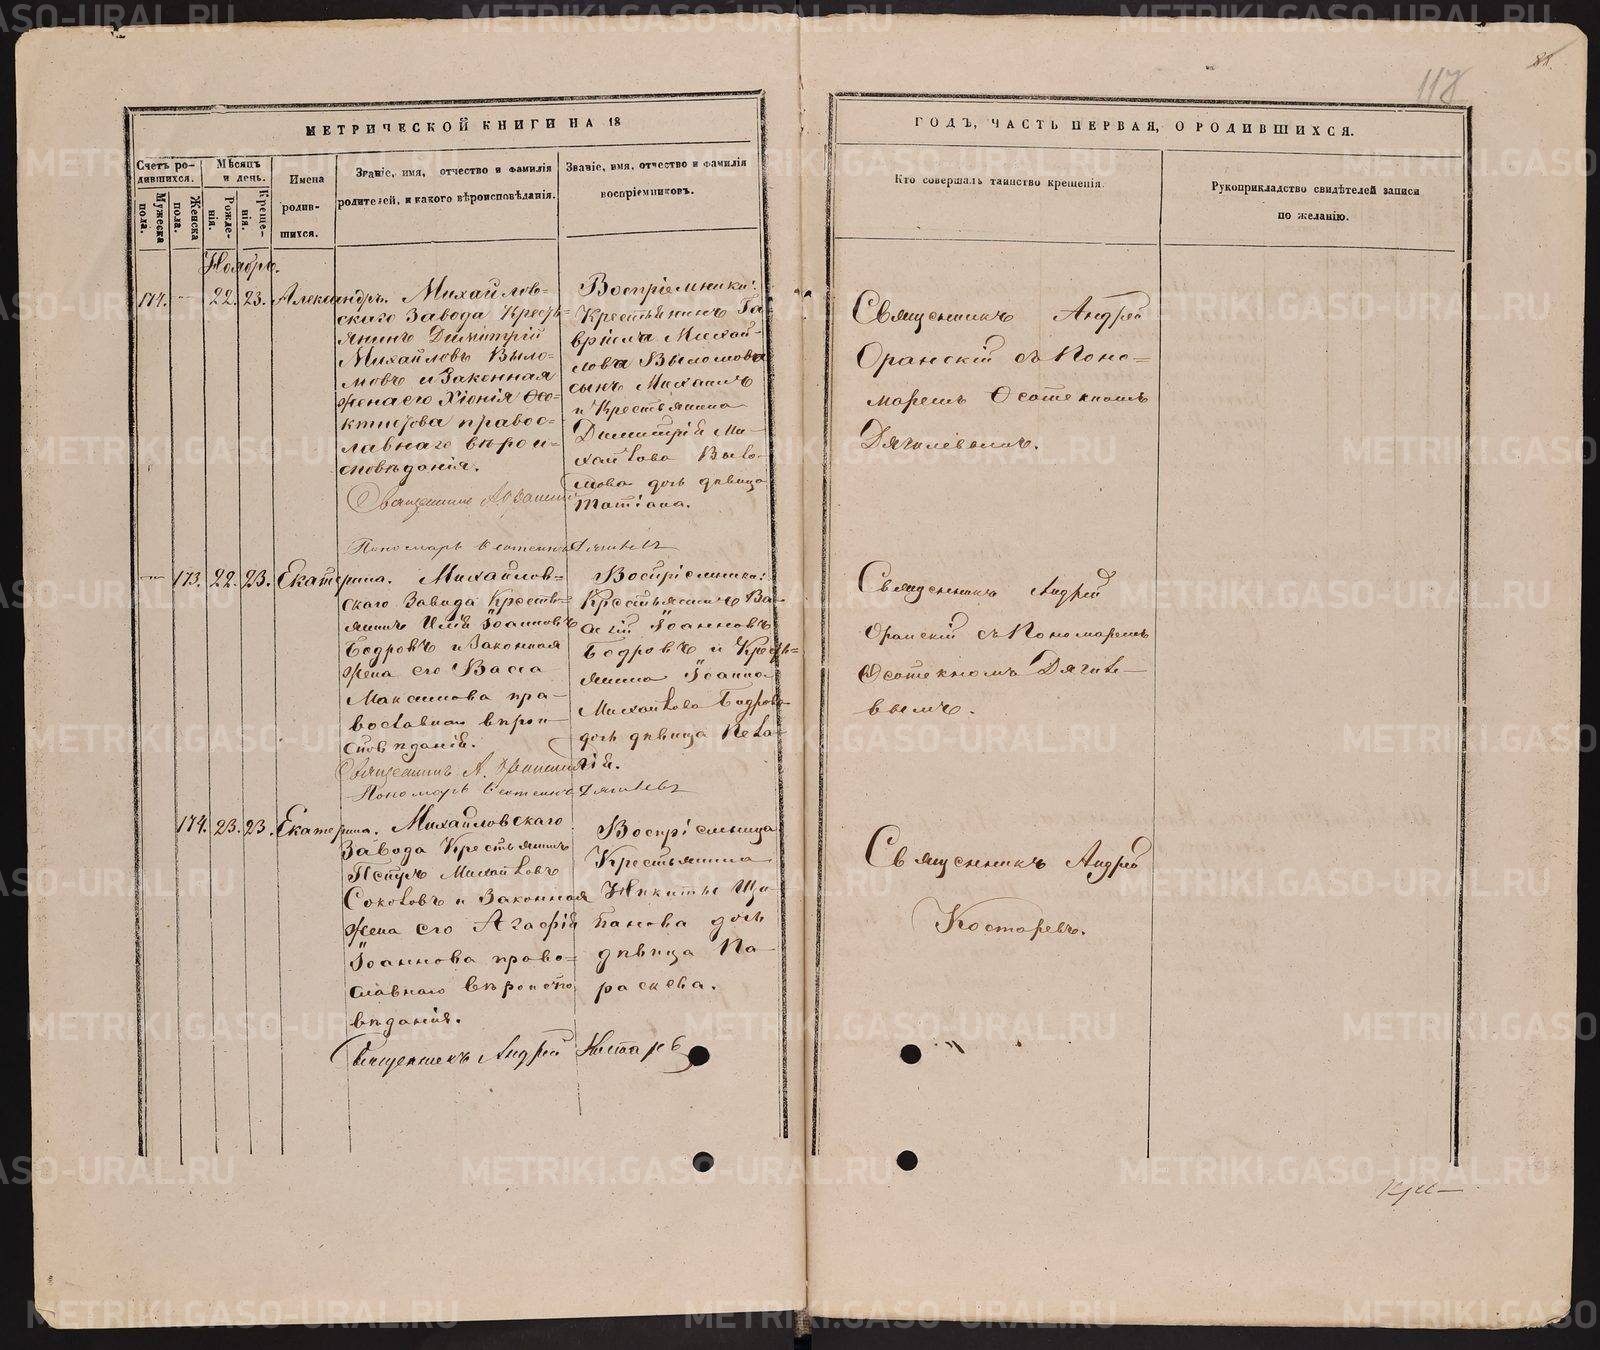 118
МЕТРИЧЕСКОЙ КНИГИ НА 18
ГОДЪ, ЧАСТЬ ПЕРВАЯ, О РОДИВШИХСЯ.
Счетъ ро-
дившихся.
Мѣсяцъ
и день.
Имена
родив-
шихся.
Званіе, имя, отчество и фамилія
родителей, и какого вѣроисповѣданія.
Званіе, имя, отчество и фамилія
воспріемниковъ.
Кто совершалъ таинство крещенія
Рукоприкладство свидѣтелей записи
по желанію.
Мужеска
пола.
Женска
пола.
Рожде-
нія.
Креще-
нія.
Ноябрь.
174. — 22. 23. Александръ.
Михайлов-
скаго Завода Кресть-
янинъ Димитрій
Михайловъ Выло-
мовъ и Законная
жена его Хіонія Ѳео-
ктистова правос-
лавнаго вѣрои-
сповѣданія.
Священникъ А. Оранскій
Пономарь Ѳеотекнъ Дягилевъ
Воспріемники:
Крестьянинъ Га-
вріила Михай-
лова Выломова
сынъ Михаилъ
и Крестьянина
Димитрія Ми-
хайлова Выло-
мова дочь дѣвица
Татіана.
Священникъ Андрей
Оранскій съ Поно-
маремъ Ѳеотекномъ
Дягилевымъ.
— 173. 22. 23. Екатерина.
Михайлов-
скаго Завода Кресть-
янинъ Илія Іоанновъ
Бодровъ и Законная
жена его Васса
Максимова пра-
вославнаго вѣрои-
сповѣданія.
Священникъ А. Оранскій
Пономарь Ѳеотекнъ Дягилевъ
Воспріемники:
Крестьянинъ Ва-
силій Іоанновъ
Бодровъ и Кресть-
янина Іоанна
Михайлова Бодрова
дочь дѣвица Пела-
гія.
Священникъ Андрей
Оранскій съ Пономаремъ
Ѳеотекномъ Дягиле-
вымъ.
174. 23. 23. Екатерина.
Михайловскаго
Завода Крестьянинъ
Петръ Михайловъ
Соколовъ и Законная
жена его Агафія
Іоаннова право-
славнаго вѣроиспо-
вѣданія.
Священникъ Андрей Костаревъ
Воспріемница
Крестьянина
Никиты Щи-
панова дочь
дѣвица Па-
раскева.
Священникъ Андрей
Костаревъ.
METRIKI.GASO-URAL.RU